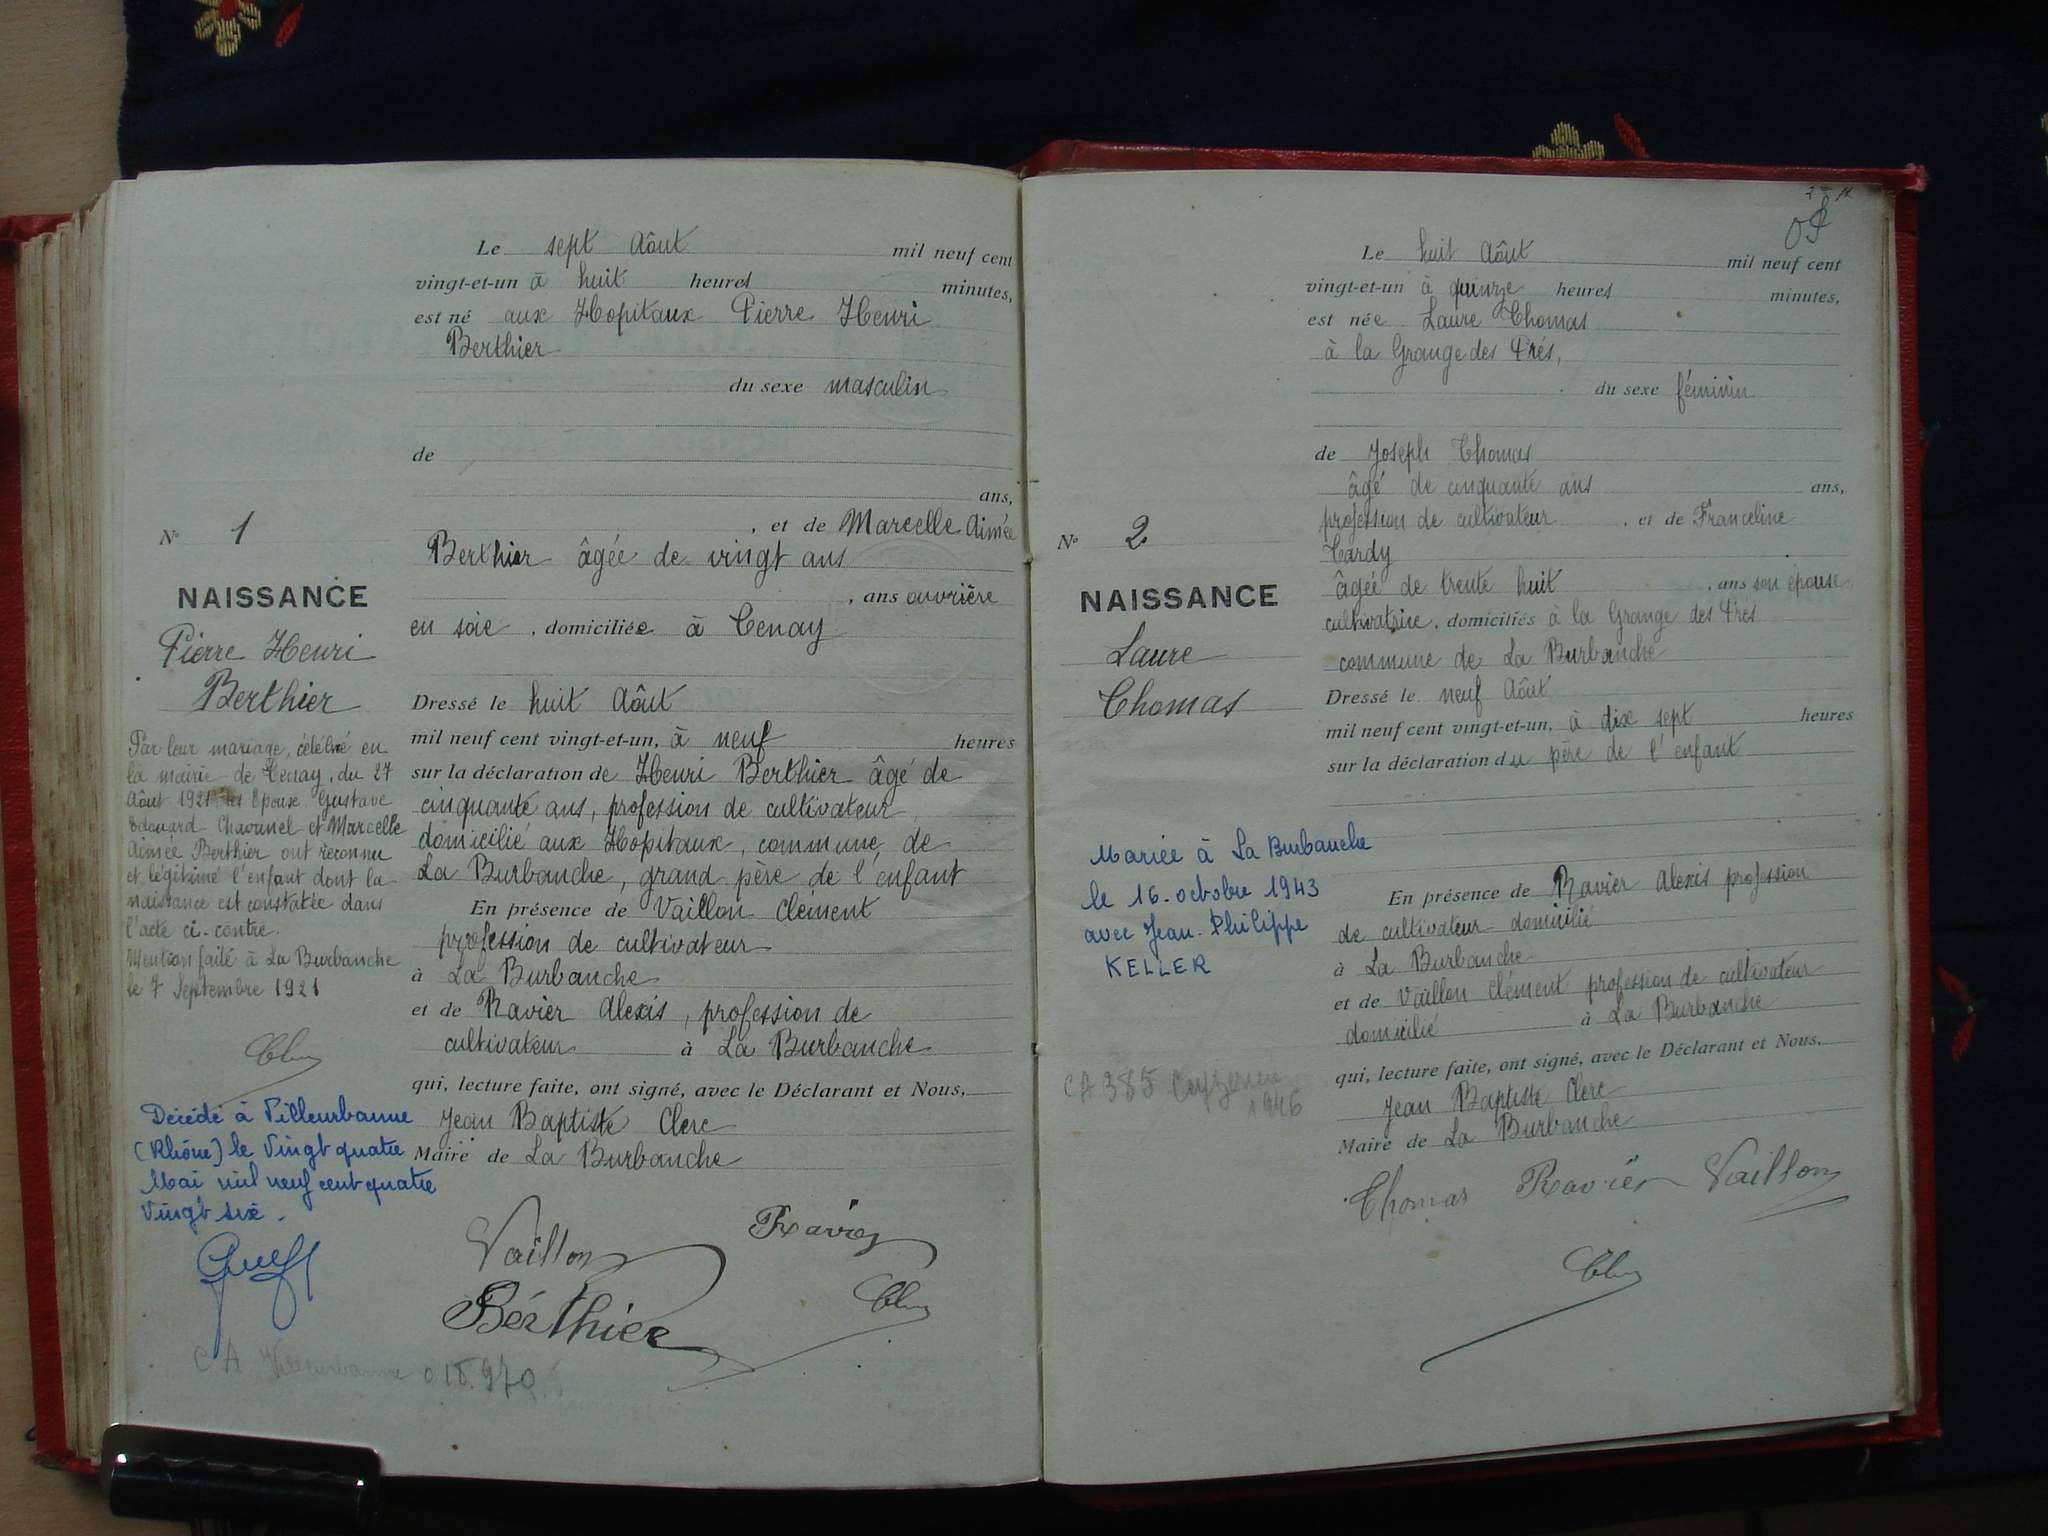 Le sept Août mil neuf cent
vingt-et-un à huit heures minutes,
est né aux Hopitaux Pierre Henri
Berthier
du sexe masculin
de
ans,
, et de Marcelle Aimée
Berthier âgée de vingt ans
, ans ouvrière
en soie , domiciliée à Tenay
Dressé le huit Août
mil neuf cent vingt-et-un, à neuf heures
sur la déclaration de Henri Berthier âgé de
cinquante ans, profession de cultivateur,
domicilié aux Hopitaux, commune de
La Burbanche, grand père de l'enfant
En présence de Vaillon Clément
profession de cultivateur
à La Burbanche
et de Ravier Alexis, profession de
cultivateur à La Burbanche
qui, lecture faite, ont signé, avec le Déclarant et Nous,
Jean Baptiste Clerc
Maire de La Burbanche
Vaillon Ravier
Berthier
N° 1
NAISSANCE
Pierre Henri
Berthier
Par leur mariage, célébré en
la mairie de Tenay, du 27
Août 1921 les Epoux Gustave
Edouard Chavanel et Marcelle
Aimée Berthier ont reconnu
et légitimé l'enfant dont la
naissance est constatée dans
l'acte ci-contre.
Mention faite à La Burbanche
le 7 Septembre 1921
Décédé à Villeurbanne
(Rhône) le Vingt quatre
Mai mil neuf cent quatre
Vingt six.
CA Villeurbanne 018.970
Le huit Août mil neuf cent
vingt-et-un à quinze heures minutes,
est née Laure Thomas
à la Grange des Prés,
du sexe féminin
de Joseph Thomas
âgé de cinquante ans ans,
profession de cultivateur , et de Franceline
Tardy
âgée de trente huit , ans son épouse
cultivatrice, domiciliés à la Grange des Prés
commune de La Burbanche
Dressé le neuf Août
mil neuf cent vingt-et-un, à dix sept heures
sur la déclaration du père de l'enfant
En présence de Ravier Alexis profession
de cultivateur domicilié
à La Burbanche
et de Vaillon Clément profession de cultivateur
domicilié à La Burbanche
qui, lecture faite, ont signé, avec le Déclarant et Nous,
Jean Baptiste Clerc
Maire de La Burbanche
Thomas Ravier Vaillon
N° 2
NAISSANCE
Laure
Thomas
Mariée à La Burbanche
le 16 octobre 1943
avec Jean-Philippe
KELLER
CA 385
1946